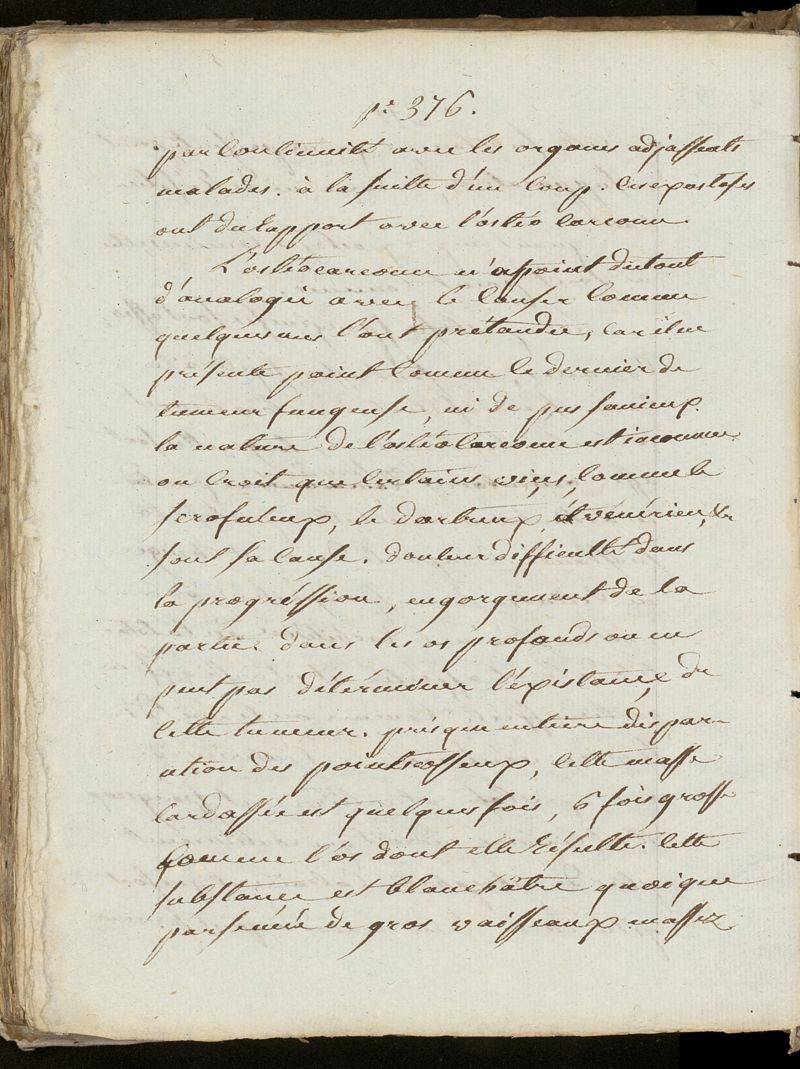 pe. 376.
par Continuité avec les organes adjassents
malades. à la suitte d'un Coup. les exostoses
ont du Rapport avec l'ostéo Carcome.
L'ostéocarcome n'a point du tout
d'analogie avec le Canser Comme
quelques uns l'ont prétandu, Car il ne
présente point Comme le dernier de
tumeur fungeuse, ni de pus sanieux.
la nature de l'ostéoCarcome est inconnue
on Croit que Certains vices, Comme le
scrofuleux, le dartreux, et vénérien, &c
sont sa Cause. douleur difficulté dans
la progréssion, engorgement de la
partie. dans les os profonds on ne
peut pas détérminer l'éxistance de
Cette tumeur. présque entière dispar-
ution des points osseux, Cette masse
lardassée est quelques fois, 6 fois grosse
Comme l'os dont elle Résulte. Cette
substance est blanchâtre quoique
parsemée de gros vaisseaux massez